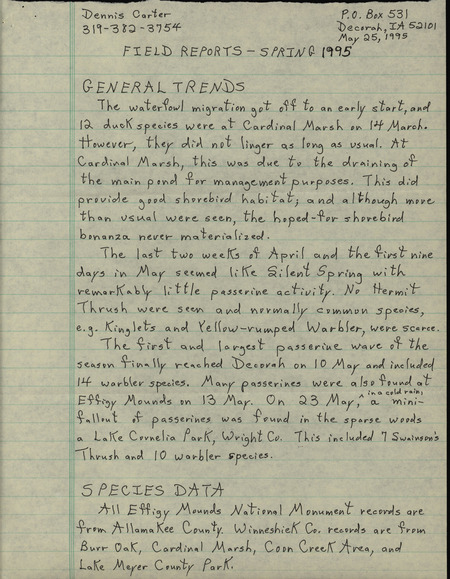 Dennis Carter
319-382-3754
P.O. Box 531
Decorah, IA 52101
May 25, 1995
FIELD REPORTS - SPRING 1995
GENERAL TRENDS
The waterfowl migration got off to an early start, and
12 duck species were at Cardinal Marsh on 14 March.
However, they did not linger as long as usual. At
Cardinal Marsh, this was due to the draining of
the main pond for management purposes. This did
provide good shorebird habitat; and although more
than usual were seen, the hoped-for shorebird
bonanza never materialized.
The last two weeks of April and the first nine
days in May seemed like Silent Spring with
remarkably little passerine activity. No Hermit
Thrush were seen and normally common species,
e.g. Kinglets and Yellow-rumped Warbler, were scarce.
The first and largest passerine wave of the
season finally reached Decorah on 10 May and included
14 warbler species. Many passerines were also found at
Effigy Mounds on 13 May. On 23 May, in a cold rain, a mini-
fallout of passerines was found in the sparse woods
a Lake Cornelia Park, Wright Co. This included 7 Swainson's
Thrush and 10 warbler species.
SPECIES DATA
All Effigy Mounds National Monument records are
from Allamakee County. Winneshiek Co. records are from
Burr Oak, Cardinal Marsh, Coon Creek Area, and
Lake Meyer County Park.